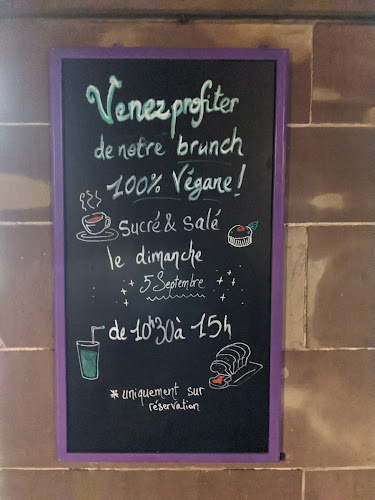 Venez profiter
de notre brunch
100% Végane!
Sucré & Salé
le dimanche
5 Septembre
de 10h30 à 15h
*uniquement sur
réservation